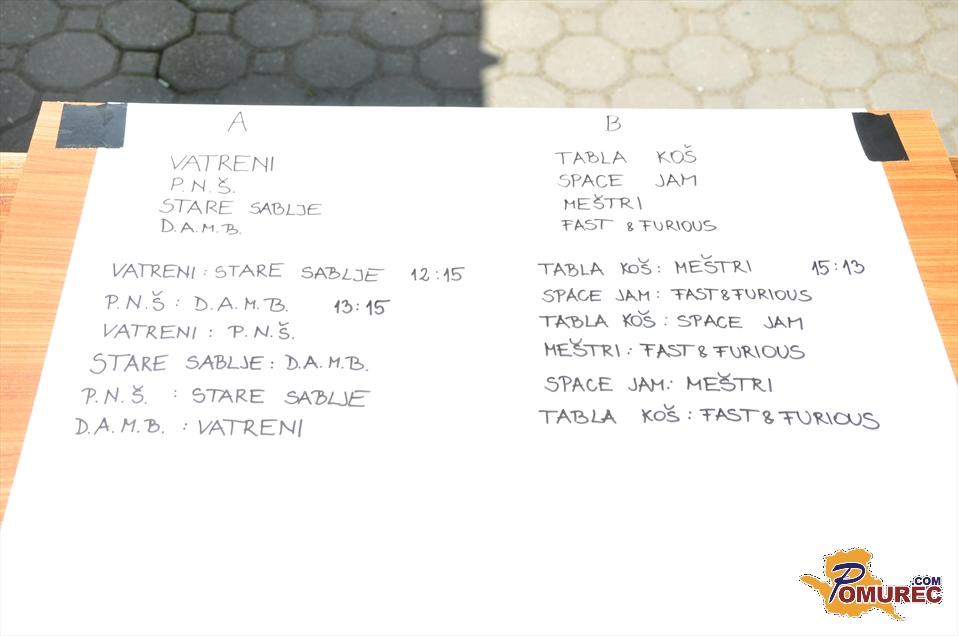 A
VATRENI
P.N.Š.
STARE SABLJE
D.A.M.B.
VATRENI : STARE SABLJE 12:15
P.N.Š : D.A.M.B. 13:15
VATRENI : P.N.Š.
STARE SABLJE : D.A.M.B.
P.N.Š. : STARE SABLJE
D.A.M.B. : VATRENI
B
TABLA KOŠ
SPACE JAM
MEŠTRI
FAST & FURIOUS
TABLA KOŠ : MEŠTRI 15:13
SPACE JAM : FAST & FURIOUS
TABLA KOŠ : SPACE JAM
MEŠTRI : FAST & FURIOUS
SPACE JAM : MEŠTRI
TABLA KOŠ : FAST & FURIOUS
POMUREC.COM